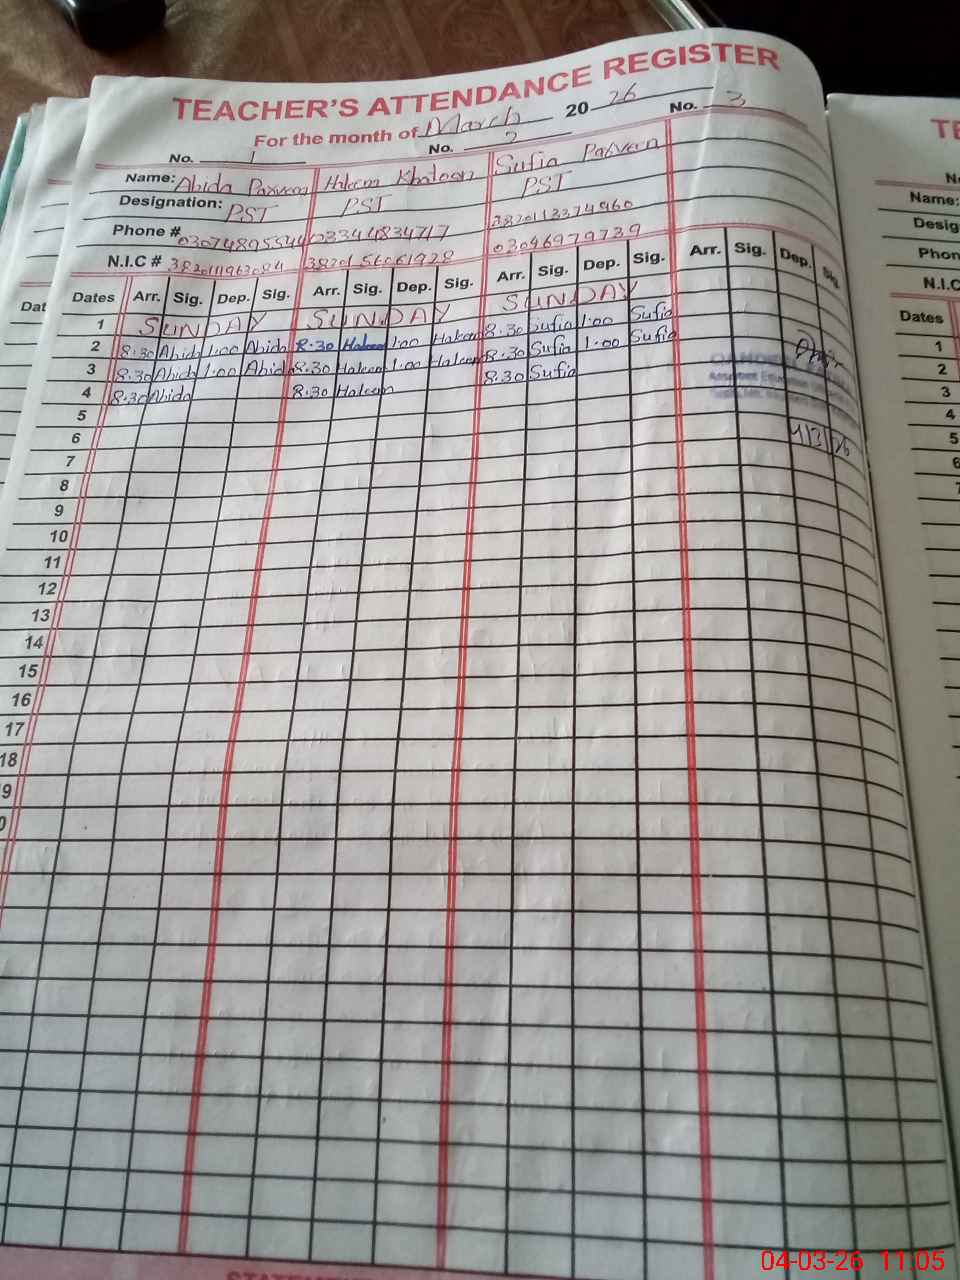 TEACHER'S ATTENDANCE REGISTER
For the month of March 2026
No. 1 No. 2 No. 3
Name: Abida Parveen Haleem Khatoon Sufia Parveen
Designation: PST PST PST
Phone # 03074895544 03344834717 3820113374960
N.I.C # 38201 56061928 03046979739
Dates Arr. Sig. Dep. Sig. Arr. Sig. Dep. Sig. Arr. Sig. Dep. Sig. Arr. Sig. Dep. Sig.
1 SUNDAY SUNDAY SUNDAY
2 8.30 Abida 1.00 Abida 8.30 Haleem 1.00 Haleem 8.30 Sufia 1.00 Sufia
3 8.30 Abida 1.00 Abida 8.30 Haleem 1.00 Haleem 8.30 Sufia 1.00 Sufia
4 8.30 Abida 8.30 Haleem 8.30 Sufia
Assistant Education
5
6 4/3/26
7
8
9
10
11
12
13
14
15
16
17
18
9
0
TE
No
Name:
Desig
Phon
N.I.C
Dates
1
2
3
4
5
6
Dat
04-03-26 11:05